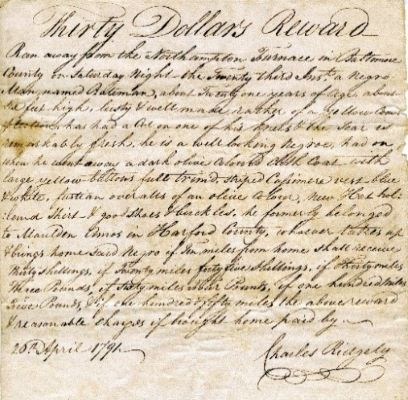 Thirty Dollars Reward
Ran away from the Northampton Furnace in Baltimore
County on Saturday Night the Twenty third Inst. a Negro
Man, named Bateman, about Twenty one years of Age about
feet high, lusty & well made rather of a yellow Com
has had a Cut on one of his & the Scar is
remarkably fresh, he is a well looking Negroe, had on
when he went away a dark olive Colored Cloth Coat with
large yellow buttons full trim'd, striped Cassimere vest blue
& white, fustian overalls of an olive Colour, New Hat
Shirt & good Shoes & buckles, he formerly belonged
to Maulden Amos in Harford County, whoever takes up
& brings home said Negro if Ten miles from home shall receive
Thirty Shillings, if Twenty miles forty five Shillings, if Thirty miles
Three Pounds, if Sixty miles Four Pounds, if one hundred miles
Five Pounds, & if one hundred & fifty miles the above reward
& reasonable Charges if brought home paid by
26th April 1791. Charles Ridgely